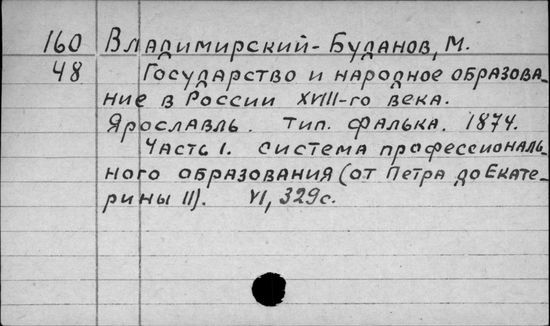 160 Владимирский-Буданов, М.
48 Государство и народное образова-
ние в России XVIII-го века.
Ярославль. Тип. Фалька. 1874.
Часть 1. Система профессиональ-
ного образования (от Петра до Екате-
рины II). VI, 329с.